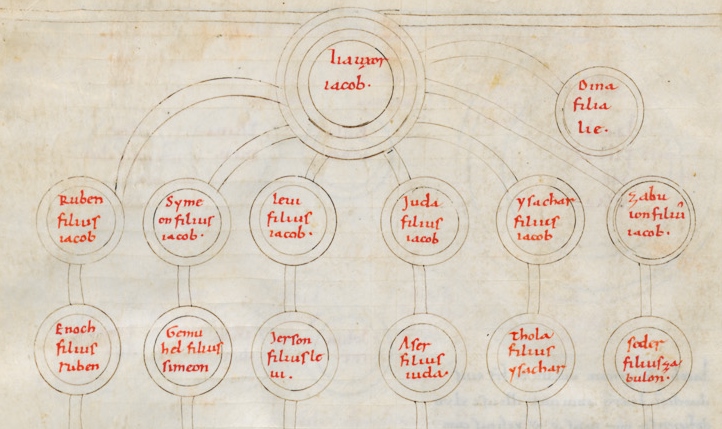 lia uxor
iacob.
Dina
filia
lie.
Ruben
filius
iacob
Syme
on filius
iacob.
leui
filius
iacob.
Juda
filius
iacob
ysachar
filius
iacob
zabu
iacob.
Enoch
filius
ruben
Gemu
hel filius
simeon
Jerson
filius le
ui.
Aser
filius
iuda.
thola
filius
ysachar
filius za
bulon.